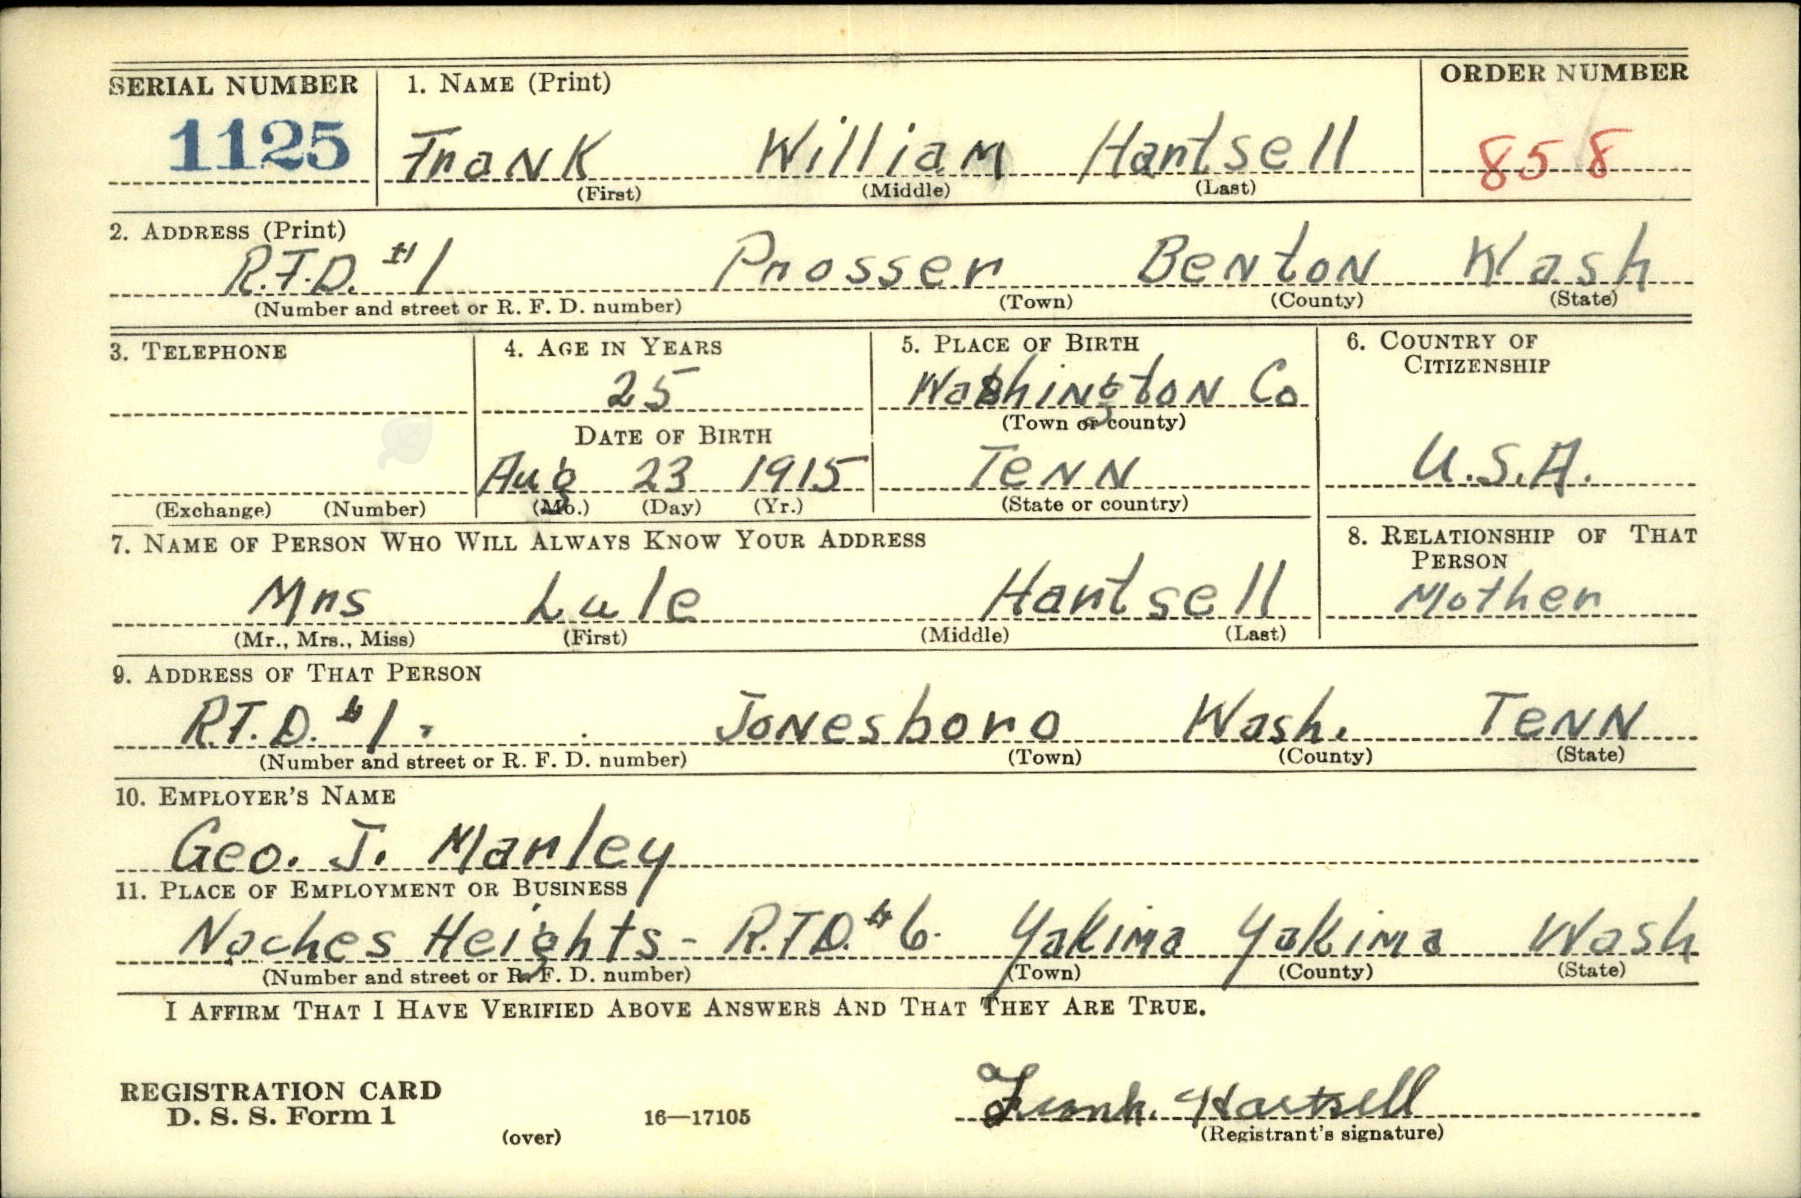 SERIAL NUMBER 1. NAME (Print) ORDER NUMBER
1125 Frank William Hartsell 858
(First) (Middle) (Last)
2. ADDRESS (Print)
R.F.D. #1 Prosser Benton Wash
(Number and street or R. F. D. number) (Town) (County) (State)
3. TELEPHONE 4. AGE IN YEARS 5. PLACE OF BIRTH 6. COUNTRY OF CITIZENSHIP
25 Washington Co
(Town or county)
DATE OF BIRTH
Aug 23 1915 Tenn U.S.A.
(Exchange) (Number) (Mo.) (Day) (Yr.) (State or country)
7. NAME OF PERSON WHO WILL ALWAYS KNOW YOUR ADDRESS 8. RELATIONSHIP OF THAT PERSON
Mrs Lule Hartsell Mother
(Mr., Mrs., Miss) (First) (Middle) (Last)
9. ADDRESS OF THAT PERSON
R.F.D. #1. Jonesboro Wash. Tenn
(Number and street or R. F. D. number) (Town) (County) (State)
10. EMPLOYER'S NAME
Geo. J. Marley
11. PLACE OF EMPLOYMENT OR BUSINESS
Naches Heights - R.F.D. #6. Yakima Yakima Wash
(Number and street or R. F. D. number) (Town) (County) (State)
I AFFIRM THAT I HAVE VERIFIED ABOVE ANSWERS AND THAT THEY ARE TRUE.
REGISTRATION CARD
D. S. S. Form 1 16—17105 Frank. Hartsell
(over) (Registrant's signature)